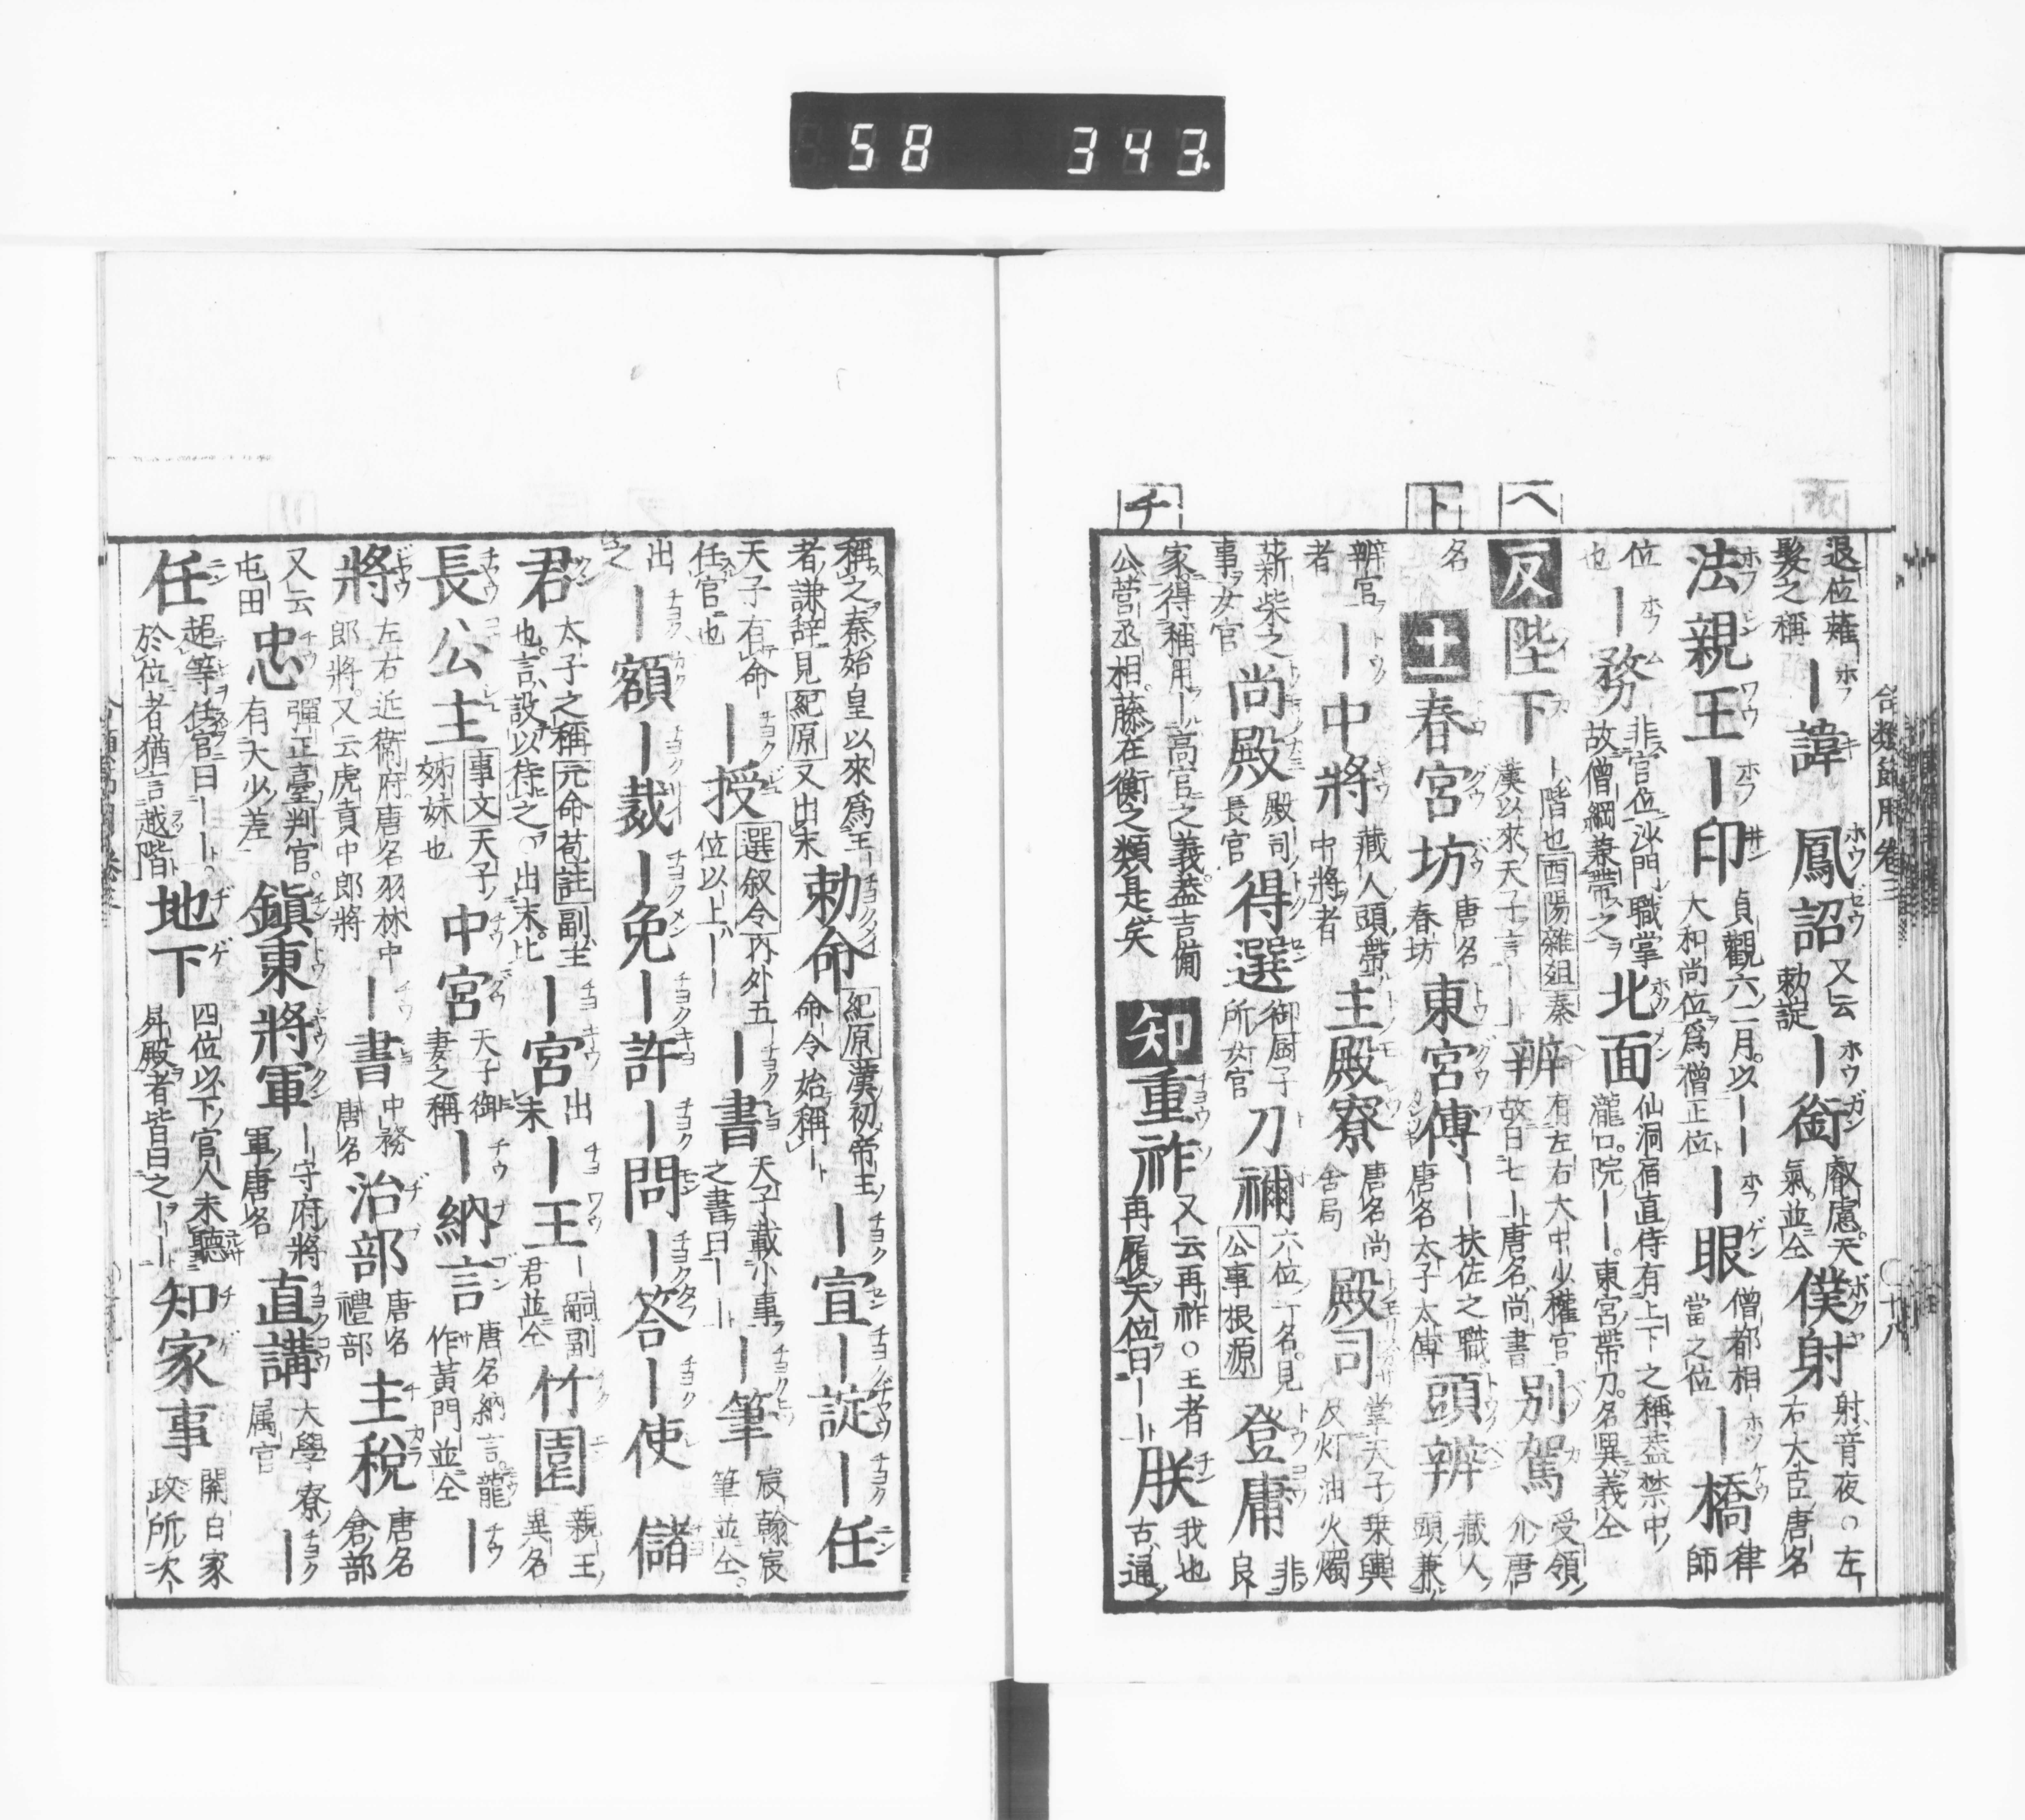 58 343
合類節用卷三
十八
退位薙髮之稱 ー諱 鳳詔 又云勅諚 ー銜 叡慮天氣並仝 僕射 射音夜○左右大臣唐名
法親王 ー印 貞觀六二月以ーー大和尚位爲僧正位 ー眼 僧都相當之位 ー橋 律師
位也 ー務 非官位沙門職掌故僧綱兼帶之 北面 仙洞宿直侍有上下之稱蓋禁中瀧口院ーー東宮帶刀名異義仝
ヘ
反 陛下 ー階也酉陽雜俎秦漢以來天子言ーー 辨 有左右大中少權官故曰七ー唐名尚書 別駕 受領介唐
ト
名 土 春宮坊 唐名春坊 東宮傅 ーー扶佐之職唐名太子太傅 頭辨 藏人頭兼
辨官者 ー中將 藏人頭帶中將者 主殿寮 唐名尚舍局 殿司 掌天子乗輿及灯油火燭
薪柴之事女官 尚殿 殿司長官 得選 御厨子所女官 刀禰 六位丁名見公事根源 登庸 非良
チ
家得稱用ー高官之義蓋吉備公菅丞相藤在衡之類是矣 知 重祚 又云再祚○王者再履天位曰ーー 朕 我也古通
稱之秦始皇以來爲王者謙辭見紀原又出末 勅命 紀原漢初帝王命令始稱ー ー宣 ー諚 ー任
天子有命任官也 ー授 選叙令内外五位以上ーー ー書 天子載小事之書曰ーー ー筆 宸翰宸筆並仝
出之 ー額 ー裁 ー免 ー許 ー問 ー答 ー使 儲
君 太子之稱元命苞註副主也言設以待之○出末比 ー宮 出末 ー王 ー嗣副君並仝 竹園 親王異名
長公主 事文天子姊妹也 中宮 天子御妻之稱 ー納言 唐名納言龍作黄門並仝 ー
將 左右近衛府唐名羽林中郎將又云虎賁中郎將 ー書 中務唐名 治部 唐名禮部 主税 唐名倉部
又云屯田 忠 彈正臺判官有大少差 鎭東將軍 ー守府將軍唐名 直講 大學寮属官 ー
任 超等任官曰ーー於位者猶言越階 地下 四位以下官人未聽昇殿者皆曰之ーー 知家事 開白家政所次